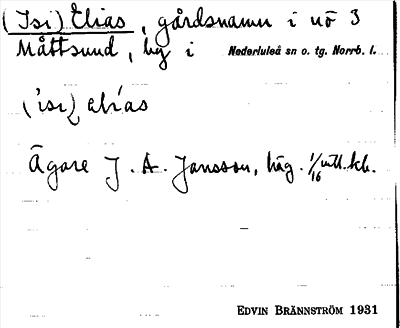 (Isi) Elias, gårdsnamn i nö 3
Måttsund, by i Nederluleå sn o. tg. Norrb. l.
('isi) eli'as
Ägare J. A. Jansson, häg. 1/16 mtl. kb.
EDVIN BRÄNNSTRÖM 1931